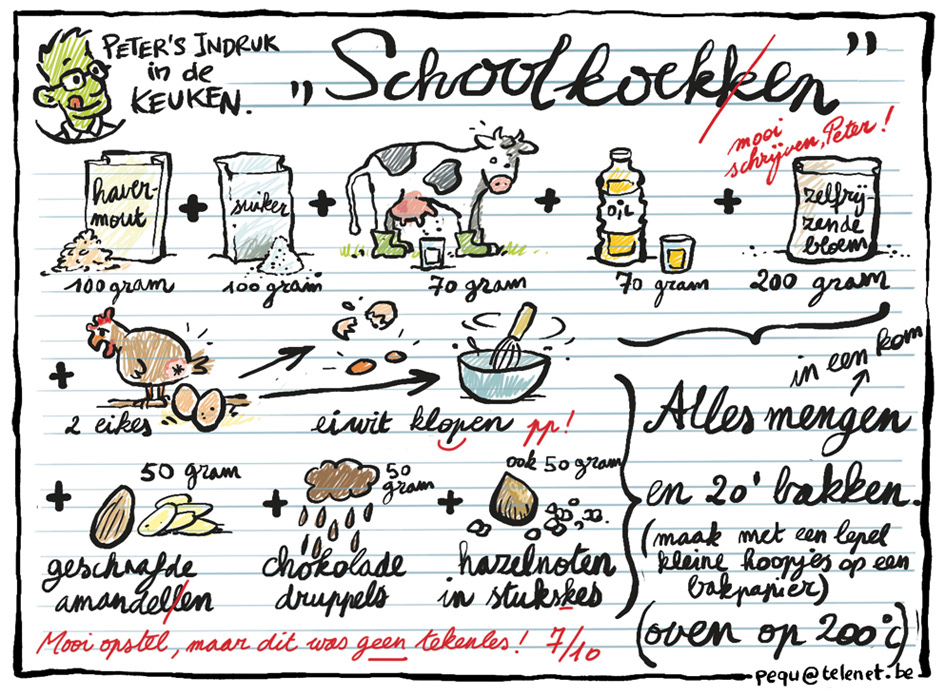 PETER'S INDRUK
in de
KEUKEN.
"Schoolkoekken"
mooi
schrijven, Peter!
haver-
mout
+
suiker
+
+
OIL
+
zelfrij-
zende
bloem
100 gram
100 gram
70 gram
70 gram
200 gram
+
2 eikes
eiwit klopen pp!
in een kom
Alles mengen
en 20' bakken.
(maak met een lepel
kleine hoopjes op een
bakpapier)
(oven op 200°C)
+
50 gram
geschaafde
amandellen
+
50
gram
chokolade
druppels
+
ook 50 gram
hazelnoten
in stukskes
Mooi opstel, maar dit was geen tekenles! 7/10
pequ@telenet.be